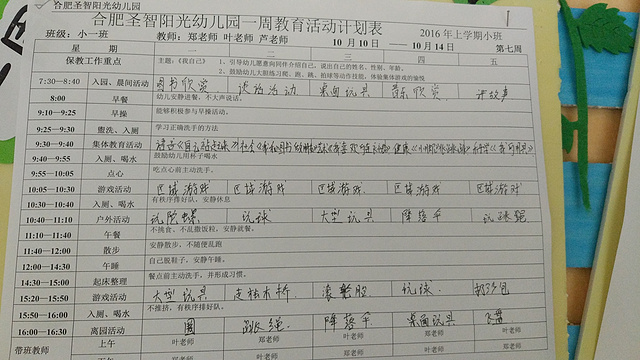 合肥圣智阳光幼儿园
合肥圣智阳光幼儿园一周教育活动计划表
班级：小一班 教师：郑老师 叶老师 芦老师 2016 年上学期小班
10 月 10 日 —— 10 月 14 日 第七周
星 期 一 二 三 四 五
保教工作重点 主题：《我自己》 1、引导幼儿愿意向同伴介绍自己，说出自己的姓名、性别、年龄。
2、鼓励幼儿大胆练习爬、跑、跳、拍球等动作技能，体验集体游戏的愉悦
7:30—8:40 入园、晨间活动 图书欣赏 谈话活动 桌面玩具 音乐欣赏 讲故事
8:00 早餐 幼儿安静进餐，不大声说话。
9:10—9:25 早操 能够积极参与早操活动。
9:25—9:30 盥洗、入厕 学习正确洗手的方法
9:30—9:40 集体教育活动
9:40—9:55 入厕、喝水 鼓励幼儿用杯子喝水
9:55—10:05 点心 吃点心前主动洗手。
10:05—10:30 游戏活动 区域游戏 区域游戏 区域游戏 区域游戏 区域游戏
10:30—10:40 入厕、喝水 有秩序排好队，安静休息
10:40—11:10 户外活动 玩陀螺 玩球 大型玩具 降落伞 玩跳绳
11:10—11:40 午餐 不挑食、不乱撒饭粒，安静就餐。
11:40—12:00 散步 安静散步，不随便乱跑
12:00—14:30 午睡 自己脱鞋子，安静午睡。
14:30—15:00 起床整理 餐点前主动洗手，并形成习惯。
15:20—15:50 游戏活动 大型玩具 走独木桥 滚轮胎 玩球 扔沙包
15:50—16:00 入厕、喝水 不推挤，有秩序排好队。
16:00—16:30 离园活动 圈 跳绳 降落伞 桌面玩具 飞盘
带班教师 上午 叶老师 郑老师 叶老师 郑老师 叶老师